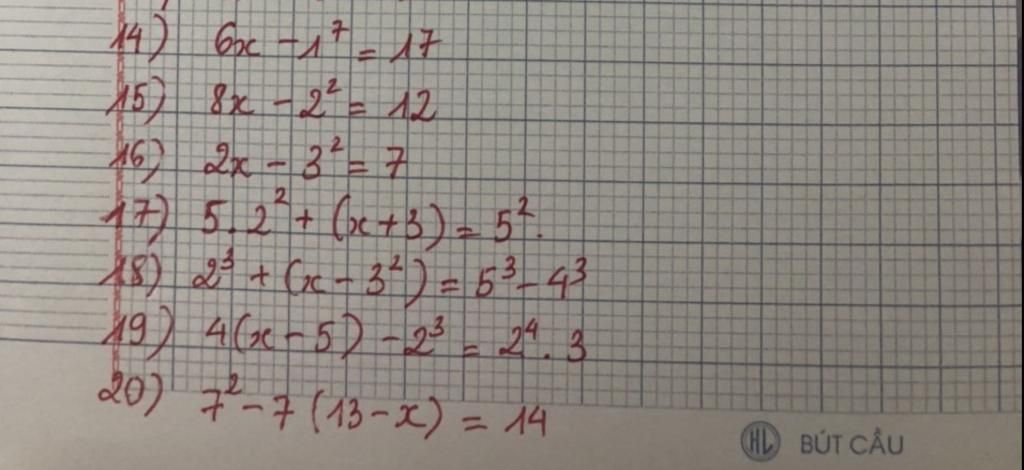 14) 6x - 1⁷ = 17
15) 8x - 2² = 12
16) 2x - 3² = 7
17) 5.2² + (x+3) = 5².
18) 2³ + (x - 3²) = 5³ - 4³
19) 4(x - 5) - 2³ = 2⁴. 3
20) 7² - 7 (13 - x) = 14
HL BÚT CẦU